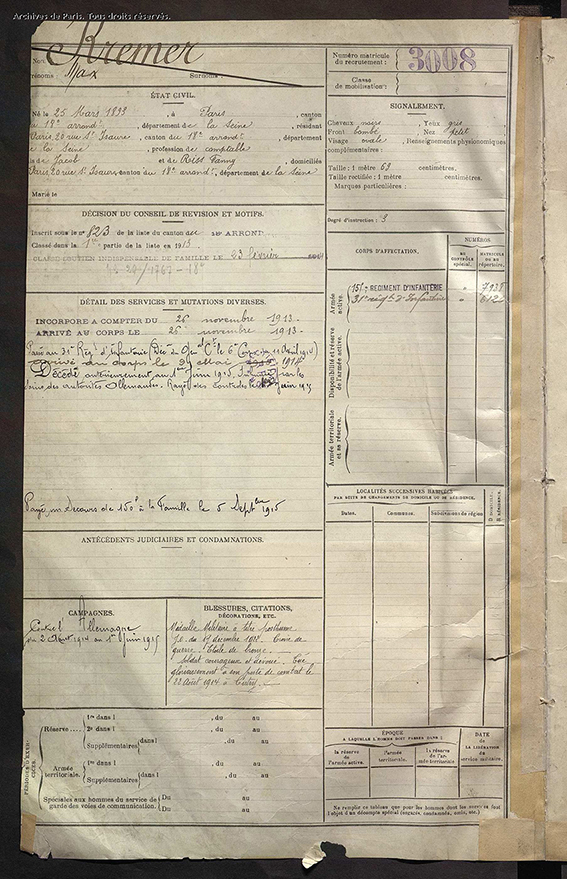 Archives de Paris. Tous droits réservés.
Kremer
Nom
Prénoms : Max Surnoms :
Numéro matricule du recrutement : 3008
Classe de mobilisation :
ÉTAT CIVIL.
Né le 25 Mars 1893, à Paris, canton
18e arrondt, département de la Seine, résidant
Paris, 20 rue St Isaure, canton du 18e arrondt, département
de la Seine, profession de comptable
de Jacob et de Fanny, domiciliés
Paris, 20 rue St Isaure canton du 18e arrondt, département de la Seine
Marié le
SIGNALEMENT.
Cheveux noirs Yeux gris
Front bombé Nez petit
Visage ovale Renseignements physionomiques
complémentaires :
Taille : 1 mètre 63 centimètres.
Taille rectifiée : 1 mètre centimètres.
Marques particulières :
Degré d'instruction : 3
DÉCISION DU CONSEIL DE REVISION ET MOTIFS.
Inscrit sous le n° 823 de la liste du canton du 18e ARRONDT
Classé dans la 1re partie de la liste en 1913
CLASSÉ SOUTIEN INDISPENSABLE DE FAMILLE LE 23 février
CORPS D'AFFECTATION.
NUMÉROS
AU CONTRÔLE spécial.
MATRICULE OU AU répertoire.
Armée active.
151e RÉGIMENT D'INFANTERIE " 7938
31e régt d'Infanterie "
Disponibilité et réserve de l'armée active.
Armée territoriale et sa réserve.
DÉTAIL DES SERVICES ET MUTATIONS DIVERSES.
INCORPORÉ A COMPTER DU 26 novembre 1913
ARRIVÉ AU CORPS LE 26 novembre 1913
Passé au 31e Régt d'Infanterie
arrivé au corps le Mai 1914
Décédé antérieurement au 1er juin 1915. par les
soins des autorités Allemandes. Rayé des contrôles le juin 1915
Payé un secours de 150f à la Famille le 5 Septbre 1915
ANTÉCÉDENTS JUDICIAIRES ET CONDAMNATIONS.
LOCALITÉS SUCCESSIVES HABITÉES
PAR SUITE DE CHANGEMENTS DE DOMICILE OU DE RÉSIDENCE.
Dates. Communes. Subdivisions de région
D DOMICILE. R RÉSIDENCE.
CAMPAGNES.
Contre l'Allemagne
du 2 Août 1914 au 1er juin 1915
BLESSURES, CITATIONS, DÉCORATIONS, ETC.
Médaille Militaire à titre posthume
J.O. du décembre Croix de
guerre. Étoile de bronze.
Soldat courageux et dévoué. Tué
glorieusement à son poste de combat le
22 Août 1914 à
PÉRIODES D'EXERCICES.
Réserve
1re dans l , du au
2e dans l , du au
Supplémentaires dans l , du au
Armée territoriale.
1re dans l , du au
Supplémentaires dans l , du au
Spéciales aux hommes du service de garde des voies de communication.
Du au
Du au
ÉPOQUE
A LAQUELLE L'HOMME DOIT PASSER DANS :
la réserve de l'armée active.
l'armée territoriale.
la réserve de l'armée territoriale
DATE DE LA LIBÉRATION du service militaire.
Ne remplir ce tableau que pour les hommes dont les services font
l'objet d'un décompte spécial (engagés, condamnés, omis, etc.)